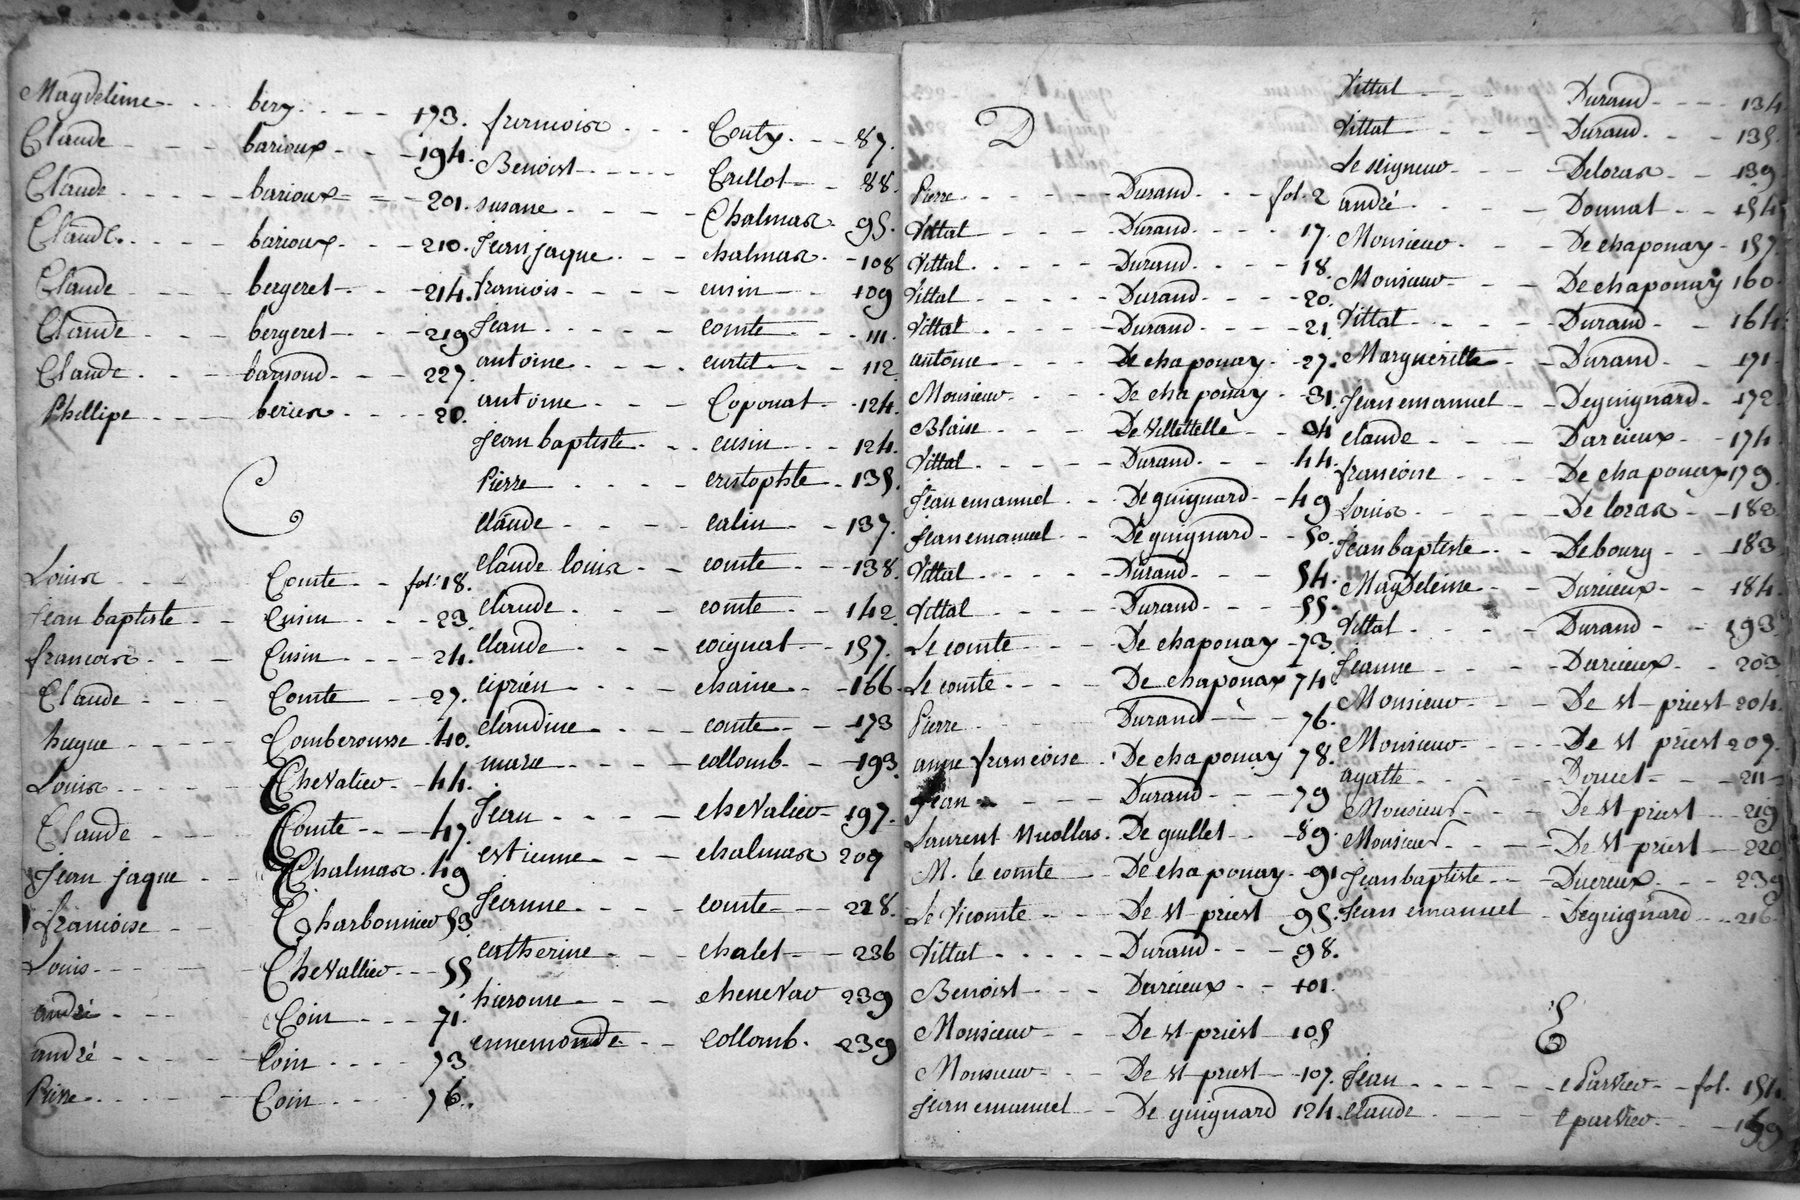 Magdeleine bery 173.
Claude barioux 194.
Claude barioux 201.
Claude barioux 210.
Claude bergeret 214.
Claude bergeret 219
Claude 227
Phillipe 20.
C
Louise Comte fol. 18.
Jean baptiste Cusin 23.
francoise Cusin 24.
Claude Comte 27.
hugue Comberousse 40.
Louise Chevalier 44.
Claude Comte 47.
Jean jaque Chalmas 49
francoise Charbonnier 53.
Louis Chevallier 55
andré Coin 71.
andré Coin 73
Pierre Coin 76.
francoise Couty 87.
Benoist Crillot 88.
susane Chalmas 95.
Jean jaque chalmas 108
francois cusin 109
Jean comte 111.
antoine curtil 112.
antoine Coponat 124.
Jean baptiste cusin 124.
Pierre cristophle 135.
claude calin 137.
claude louise comte 138.
claude comte 142
claude coignat 157.
ciprien chaine 166
claudine comte 173
marie collomb 193.
Jean chevalier 197.
estienne chalmas 209
Jeanne comte 228.
catherine chalet 236
hierome chenevav 239
ennemonde collomb. 239
D
Pierre Durand fol. 2
Vittal Durand 17.
Vittal Durand 18.
Vittal Durand 20.
Vittal Durand 21
antoine De chaponay 27.
Monsieur De chaponay 31.
Blaise De Villettelle 34
Vittal Durand 44.
Jean emanuel De guignard 49
Jean emanuel De guignard 50.
Vittal Durand 54.
Vittal Durand 55.
Le comte De chaponay 73.
Le comte De chaponay 74
Pierre Durand 76.
anne francoise De chaponay 78.
Jean Durand 79
Laurent Nicollas De guillet 89.
M. le comte De chaponay 91
Le Vicomte De st priest 95.
Vittal Durand 98.
Benoist Darcieux 101.
Monsieur De st priest 105
Monsieur De st priest 107.
Jean emanuel De guignard 124.
Vittal Durand 134
Vittal Durand 135.
Le seigneur Deloras 139
andré Donnat 154
Monsieur De chaponay 157.
Monsieur De chaponay 160.
Vittal Durand 164.
Marguéritte Durand 171
Jean emanuel Deguignard 172
claude Darcieux 174
francoise De chaponay 179
Louise De loras 183
Jean baptiste Debourg 183
Magdeleine Darcieux 184.
Vittal Durand 193.
Jeanne Darcieux 203
Monsieur De st priest 204.
Monsieur De st priest 207.
agatte Doucet 211
Monsieur De st priest 219
Monsieur De st priest 220
Jean baptiste Ducreux 239
Jean emanuel Deguignard 216
E
Jean eParvier fol. 154.
claude eparvier 199